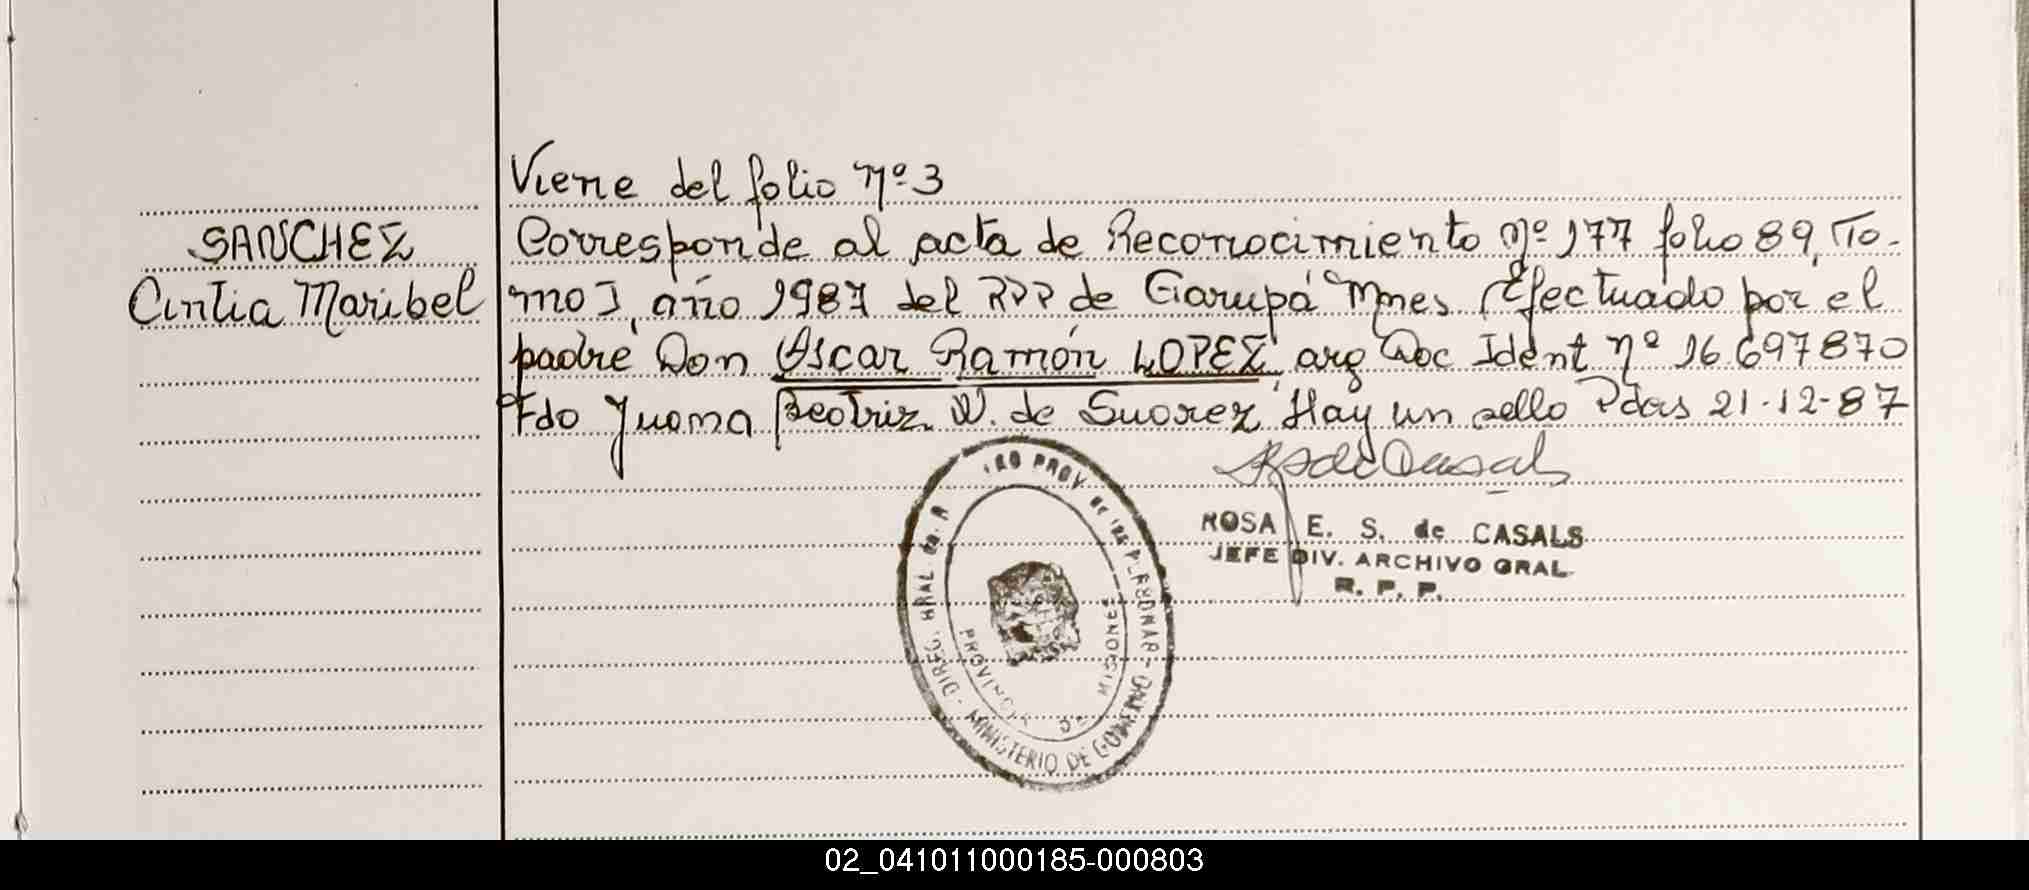 Viene del folio Nº 3
SANCHEZ
Corresponde al acta de Reconocimiento Nº 177 folio 89, To-
Cintia Maribel
mo I, año 1987 del RPP de Garupá Mnes. Efectuado por el
padre Don Oscar Ramón LOPEZ, arg Doc Ident Nº 16.697870
Fdo Juana Beatriz N. de Suarez, Hay un sello Pdas 21-12-87
ROSA E. S. de CASALS
JEFE DIV. ARCHIVO GRAL.
R. P. P.
PROV. DE LAS PERSONAS - MINISTERIO DE GOBIERNO - DIREC. GRAL.
PROVINCIA DE MISIONES
02_041011000185-000803